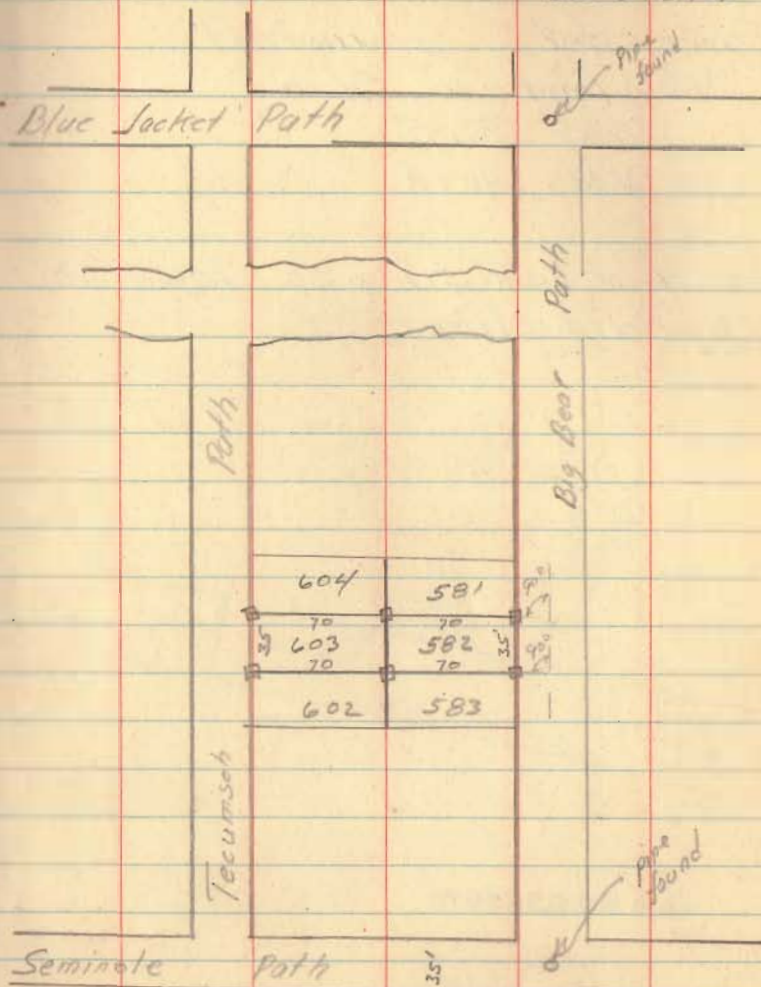 pipe found
Blue Jacket Path
Big Bear Path
Tecumseh Path
604 581
70 70
35' 603 582 35'
70 70
602 583
90°
90°
pipe found
Seminole Path
35'